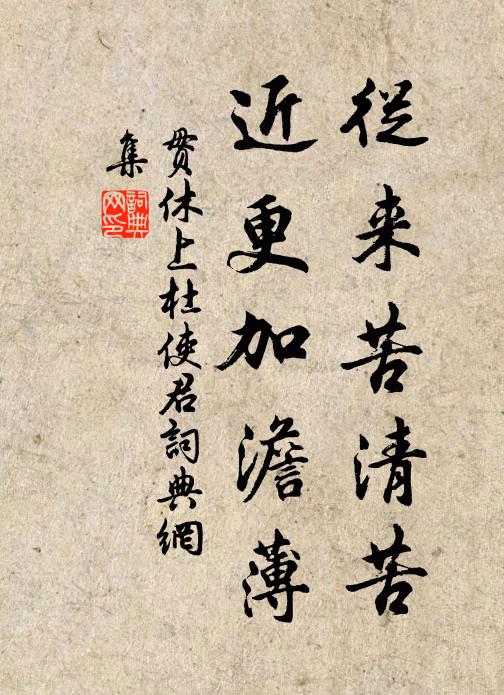 從来苦清苦
近更加澹薄
貫休上杜使君詞典網
集
詞典
网印